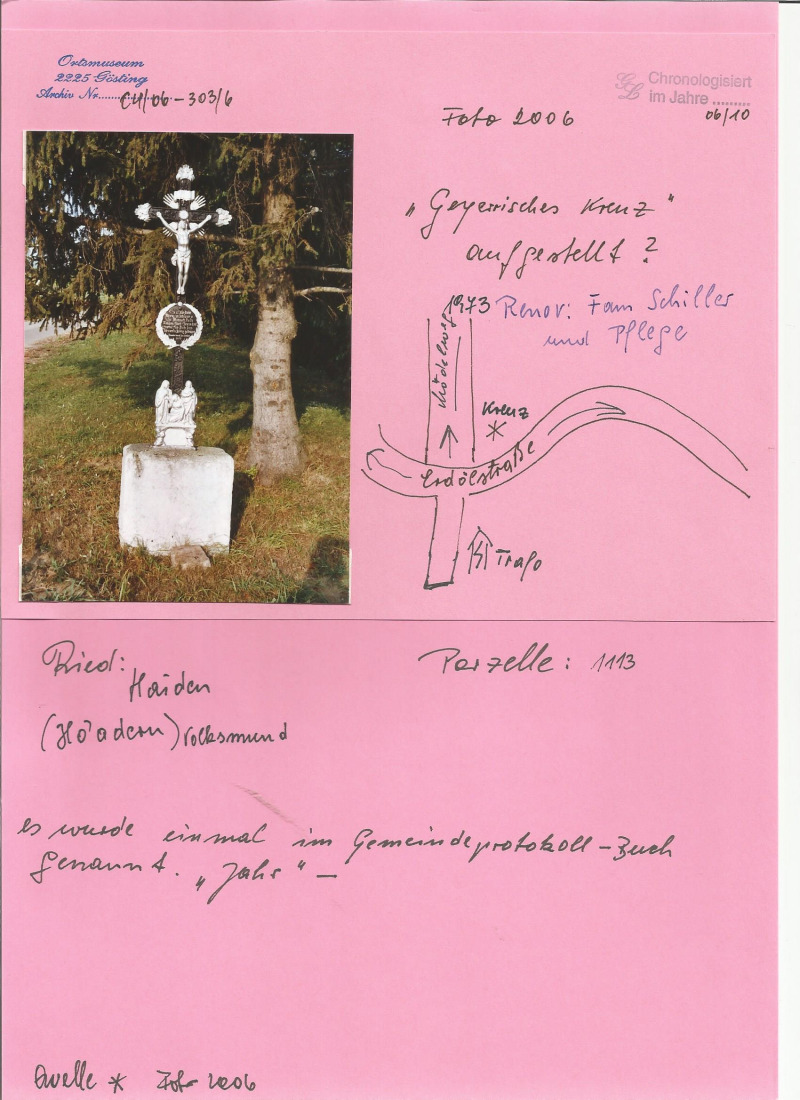 Ortsmuseum
2225 Gösting
Archiv Nr. CH/06-303/6
Chronologisiert
im Jahre .........
06/10
Foto 2006
„Geyerisches Kreuz"
aufgestellt ?
1973 Renov: Fam Schiller
und Pflege
Kreuz
Erdölstraße
Trafo
Ried:
Haiden
(Höadern) Volksmund
Parzelle: 1113
es wurde einmal im Gemeindeprotokoll-Buch
genannt. „Jahr" –
Quelle * Foto 2006